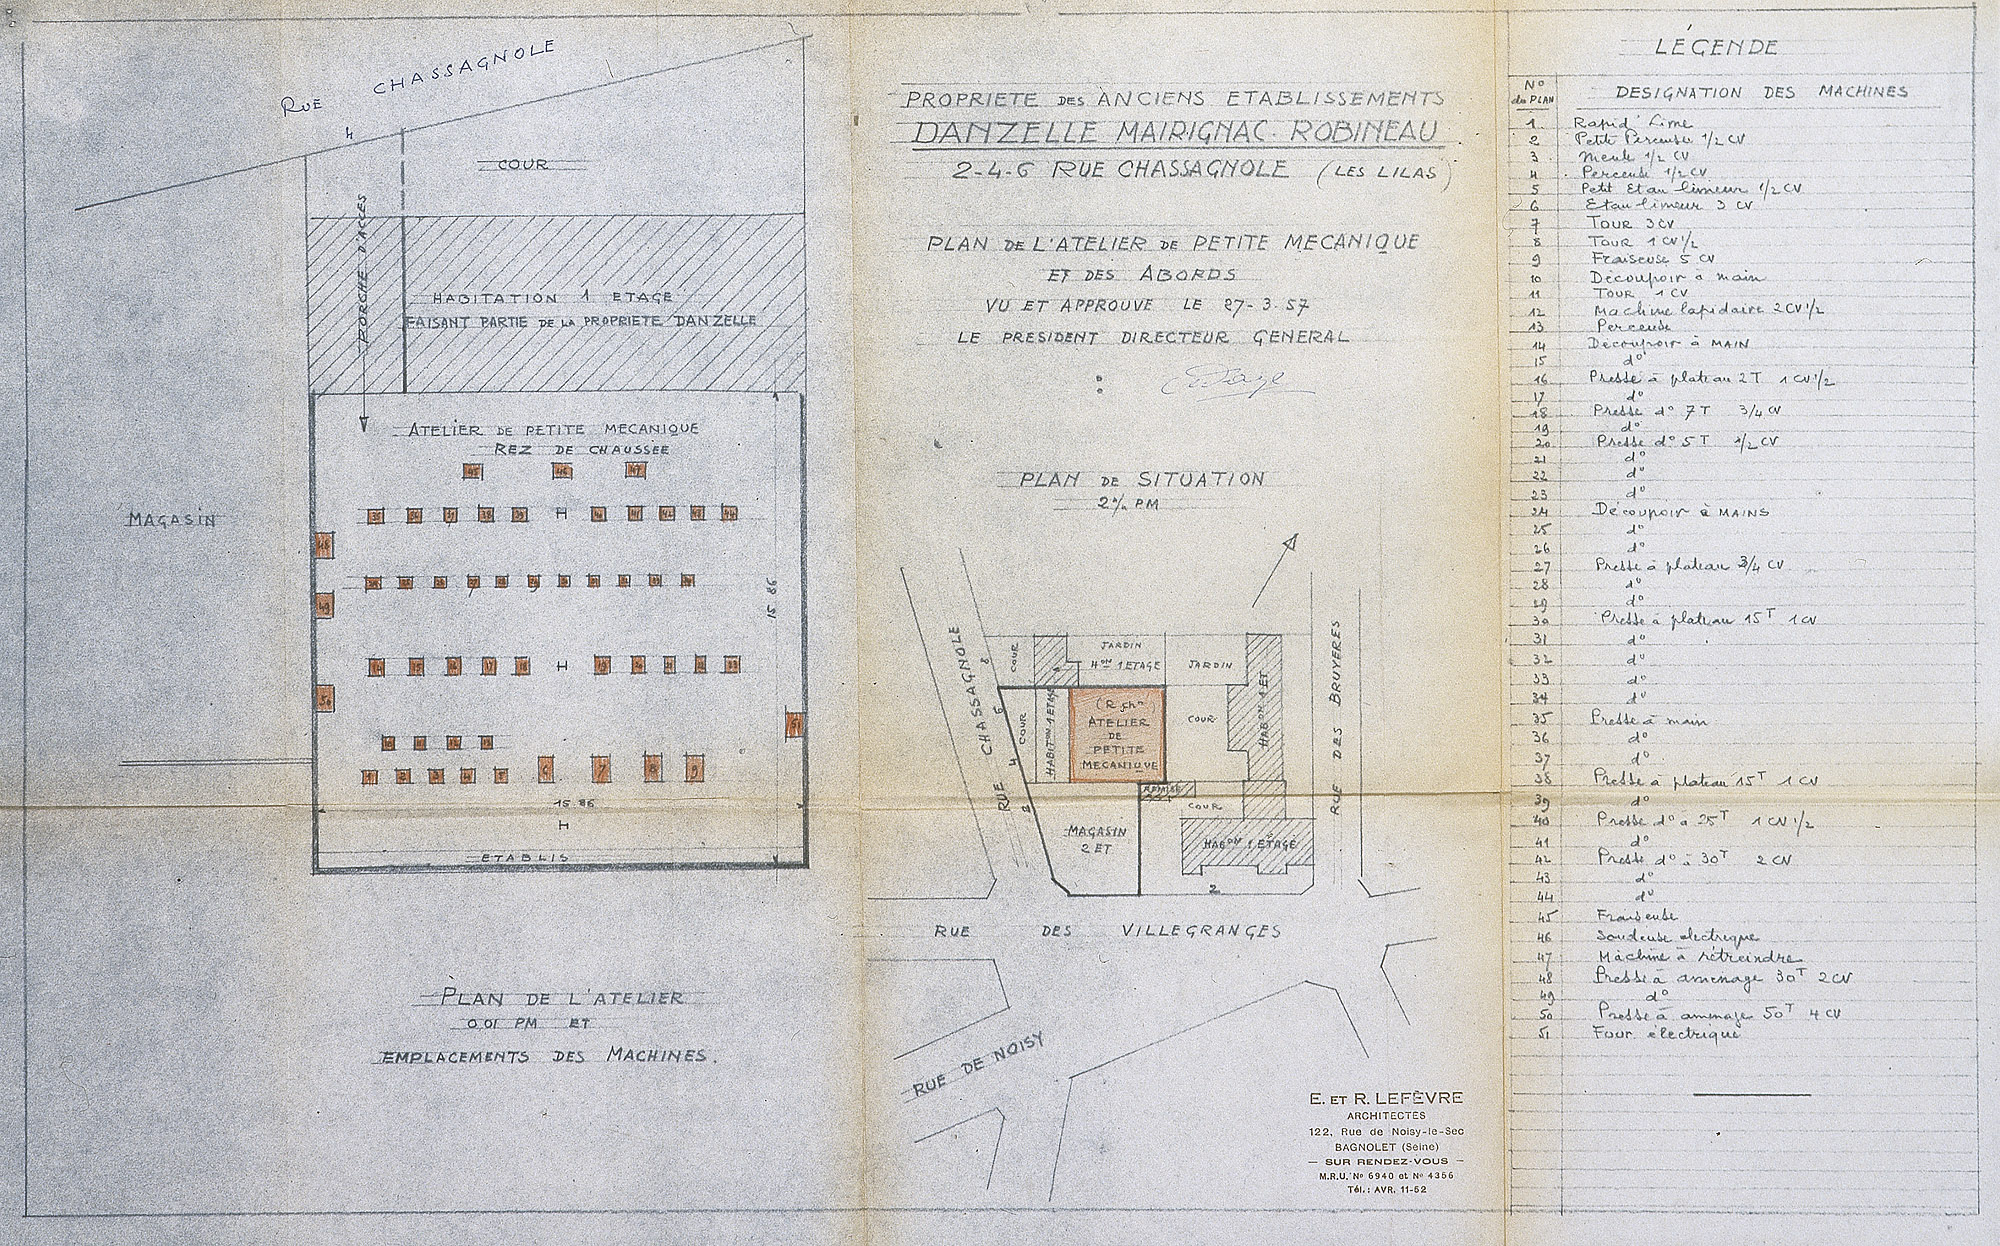 RUE CHASSAGNOLE
4
COUR
PORCHE D'ACCES
HABITATION 1 ETAGE
FAISANT PARTIE DE LA PROPRIETE DANZELLE
ATELIER DE PETITE MECANIQUE
REZ DE CHAUSSEE
45 46 47
35 36 37 38 39 H 40 41 42 43 44
MAGASIN
48
49
15.86
14 15 16 17 18 H 19 20 21 22 23
50
51
10 11 12 13
1 2 3 4 5 6 7 8 9
15.86
H
ETABLIS
PLAN DE L'ATELIER
0.01 PM ET
EMPLACEMENTS DES MACHINES.
PROPRIETE DES ANCIENS ETABLISSEMENTS
DANZELLE MAIRIGNAC. ROBINEAU
2-4-6 RUE CHASSAGNOLE (LES LILAS)
PLAN DE L'ATELIER DE PETITE MECANIQUE
ET DES ABORDS
VU ET APPROUVE LE 27-3-57
LE PRESIDENT DIRECTEUR GENERAL
PLAN DE SITUATION
2 m/m PM
RUE CHASSAGNOLE
8
6
4
2
COUR
JARDIN
Hon 1 ETAGE
JARDIN
COUR
HABITon 1 ETAGE
(R. chée)
ATELIER
DE
PETITE
MECANIQUE
COUR
HABon 1 ET
RUE DES BRUYERES
REMISE
COUR
MAGASIN
2 ET
HABon 1 ETAGE
2
RUE DES VILLEGRANGES
RUE DE NOISY
E. ET R. LEFÈVRE
ARCHITECTES
122, Rue de Noisy-le-Sec
BAGNOLET (Seine)
— SUR RENDEZ-VOUS —
M.R.U. No 6940 et No 4356
Tél.: AVR. 11-52
LÉGENDE
No du PLAN DESIGNATION DES MACHINES
1 Rapid' Lime
2 Petite Perceuse 1/2 CV
3 Meule 1/2 CV
4 Perceuse 1/2 CV
5 Petit Etau limeur 1/2 CV
6 Etau limeur 3 CV
7 TOUR 3 CV
8 TOUR 1 CV 1/2
9 Fraiseuse 5 CV
10 Découpoir à main
11 TOUR 1 CV
12 Machine lapidaire 2 CV 1/2
13 Perceuse
14 Découpoir à MAIN
15 do
16 Presse à plateau 2T 1 CV 1/2
17 do
18 Presse do 7T 3/4 CV
19 do
20 Presse do 5T 1/2 CV
21 do
22 do
23 do
24 Découpoir à MAINS
25 do
26 do
27 Presse à plateau 3/4 CV
28 do
29 do
30 Presse à plateau 15T 1 CV
31 do
32 do
33 do
34 do
35 Presse à main
36 do
37 do
38 Presse à plateau 15T 1 CV
39 do
40 Presse do à 25T 1 CV 1/2
41 do
42 Presse do à 30T 2 CV
43 do
44 do
45 Fraiseuse
46 Soudeuse electrique
47 Machine à rétreindre
48 Presse à amenage 30T 2 CV
49 do
50 Presse à amenage 50T 4 CV
51 Four électrique